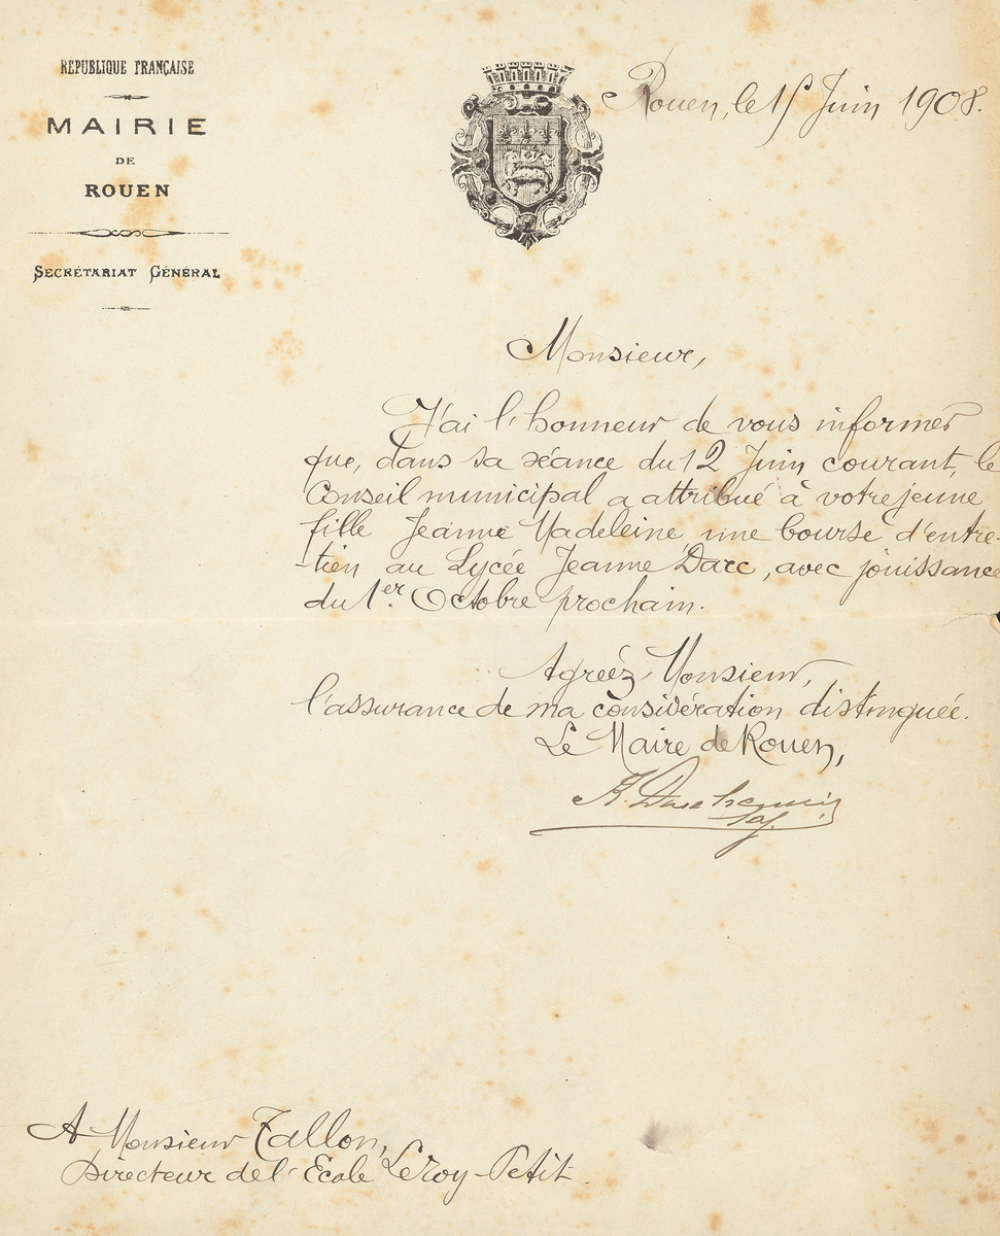 RÉPUBLIQUE FRANÇAISE
MAIRIE
DE
ROUEN
SECRÉTARIAT GÉNÉRAL
Rouen, le 15 Juin 1908.
Monsieur,
J'ai l'honneur de vous informer
que, dans sa séance du 12 Juin courant, le
Conseil municipal a attribué à votre jeune
fille Jeanne Madeleine, une bourse d'entre-
-tien au Lycée Jeanne Darc, avec jouissance
du 1er. Octobre prochain.
Agréez, Monsieur,
l'assurance de ma considération distinguée.
Le Maire de Rouen,
A Monsieur Tallon,
Directeur de l'Ecole Leroy-Petit.